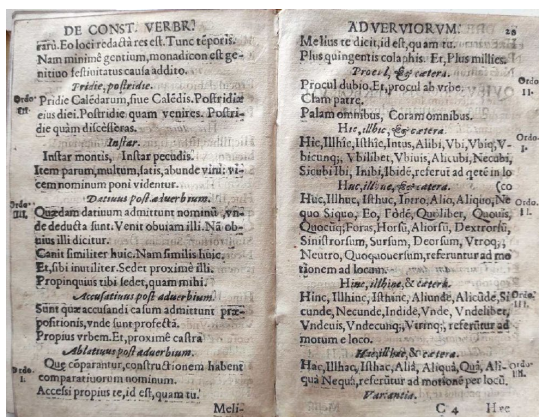 DE CONST. VERBR.
rarū. Eo loci redacta res est. Tunc tēporis.
Nam minimè gentium, monadicon est ge-
nitiuo festiuitatis causa addito.
Pridie, postridie.
Ordo III.
Pridie Calēdarum, siue Calēdis. Postridie
eius diei. Postridie quam venires. Postri-
die quàm discesseras.
Instar.
Instar montis, Instar pecudis.
Item parum, multum, satis, abunde vini: vi-
cem nominum poni videntur.
Datiuus post aduerbium.
Ordo IIII.
Quædam datiuum admittunt nominū, vn-
de deducta sunt. Venit obuiam illi. Nā ob-
uius illi dicitur.
Canit similiter huic. Nam similis huic.
Et, sibi inutiliter. Sedet proximè illi.
Propinquius tibi sedet, quam mihi.
Accusatiuus post aduerbium.
Sunt quæ accusandi casum admittunt præ-
positionis, vnde sunt profecta.
Propius vrbem. Et, proximè castra
Ablatiuus post aduerbium.
Ordo I.
Que cōparantur, constructionem habent
comparatiuorum nominum.
Accessi propius te, id est, quam tu.
Meli-
ADVERVIORVM.
20
Melius te dicit, id est, quam tu.
Plus quingentis colaphis. Et, Plus millies.
Procul, & cætera.
Ordo II.
Procul dubio. Et, procul ab vrbe.
Clam patre.
Palam omnibus, Coram omnibus.
Hic, illhic, & cætera.
Ordo I.
Hic, Illhic, Isthic, Intus, Alibi, Vbi, Vbiq, V-
bicunq; Vbilibet, Vbiuis, Alicubi, Necubi,
Sicubi Ibi, Inibi, Ibidē, referūt ad qetē in lo
Huc, illuc, & cætera. (co
Ordo II.
Huc, Illhuc, Isthuc, Intro, Aliò, Aliquo, Ne
quo Siquo, Eo, Eodē, Quolibet, Quouis,
Quocūq; Foras, Horsū, Aliorsū, Dextrorsū,
Sinistrorsum, Sursum, Deorsum, Vtroq;,
Neutro, Quoquouersum, referuntur ad mo
tionem ad locum.
Hinc, illhinc, & cætera.
Ordo III.
Hinc, Illhinc, Isthinc, Aliundē, Alicūde, Si
cunde, Necunde, Indidē, Vnde, Vndelibet,
Vndeuis, Vndecunq;, Vtrinq;, referūtur ad
motum e loco.
Hac, illhac, & cætera.
Ordo III.
Hac, Illhac, Isthac, Aliā, Aliquà, Quà, Ali-
quà Nequà, referūtur ad motionē per locū.
Variantia.
C 4
Hve